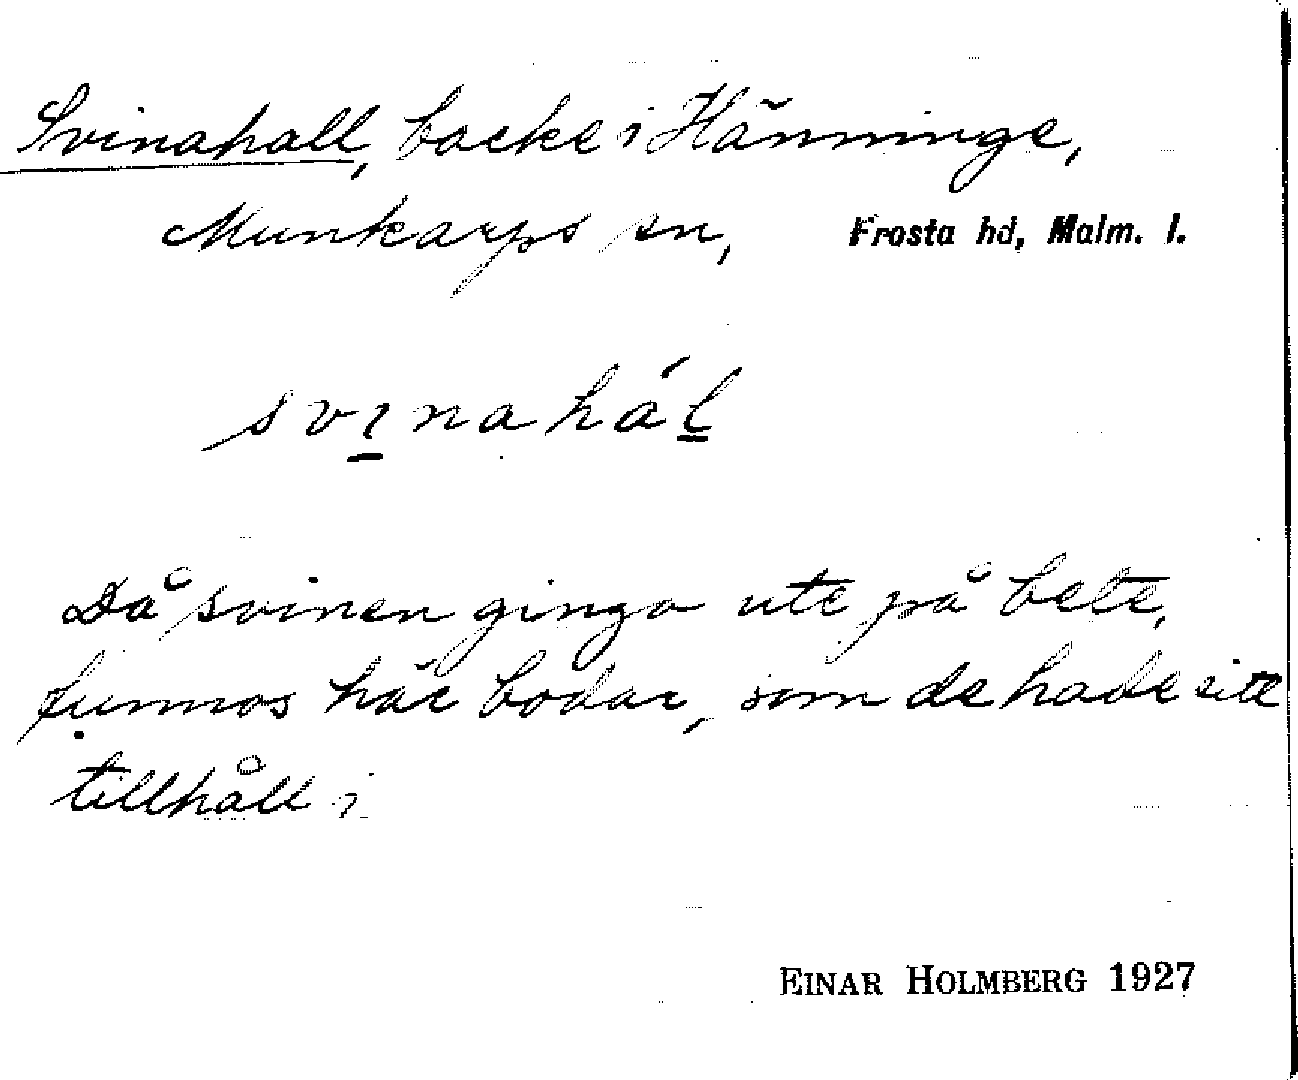 Svinahall, backe i Hänninge,
Munkarps sn, Frosta hd, Malm. l.
svinahál
Då svinen gingo ute på bete,
funnos här bodar, som de hade sitt
tillhåll i
EINAR HOLMBERG 1927